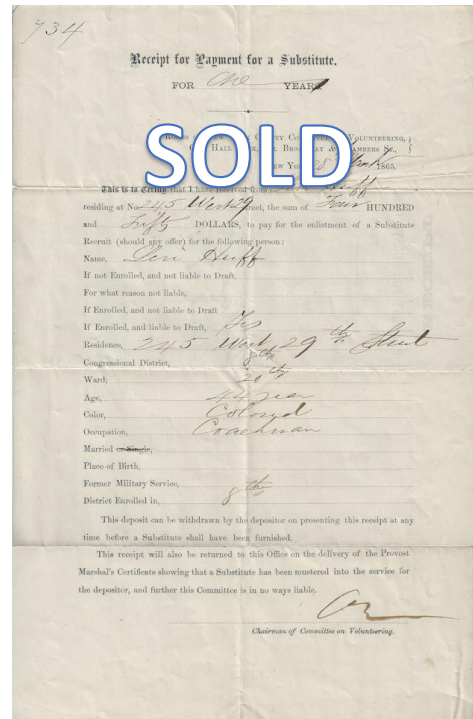 734
Receipt for Payment for a Substitute.
FOR One YEAR
COMMITTEE VOLUNTEERING,
HALL BROADWAY & CHAMBERS ST.,
NEW YORK 28 March 1865.
SOLD
This is to Certify that I have received from Huff
residing at No 245 West 29 Street, the sum of Four HUNDRED
and Fifty DOLLARS, to pay for the enlistment of a Substitute
Recruit (should any offer) for the following person:
Name, Levi Huff
If not Enrolled, and not liable to Draft,
For what reason not liable,
If Enrolled, and not liable to Draft
If Enrolled, and liable to Draft, Yes
Residence, 245 West 29th Street
Congressional District, 8th
Ward, 20th
Age, 44 year
Color, Colored
Occupation, Coachman
Married or Single,
Place of Birth,
Former Military Service,
District Enrolled in, 8th
This deposit can be withdrawn by the depositor on presenting this receipt at any
time before a Substitute shall have been furnished.
This receipt will also be returned to this Office on the delivery of the Provost
Marshal's Certificate showing that a Substitute has been mustered into the service for
the depositor, and further this Committee is in no ways liable.
Chairman of Committee on Volunteering.